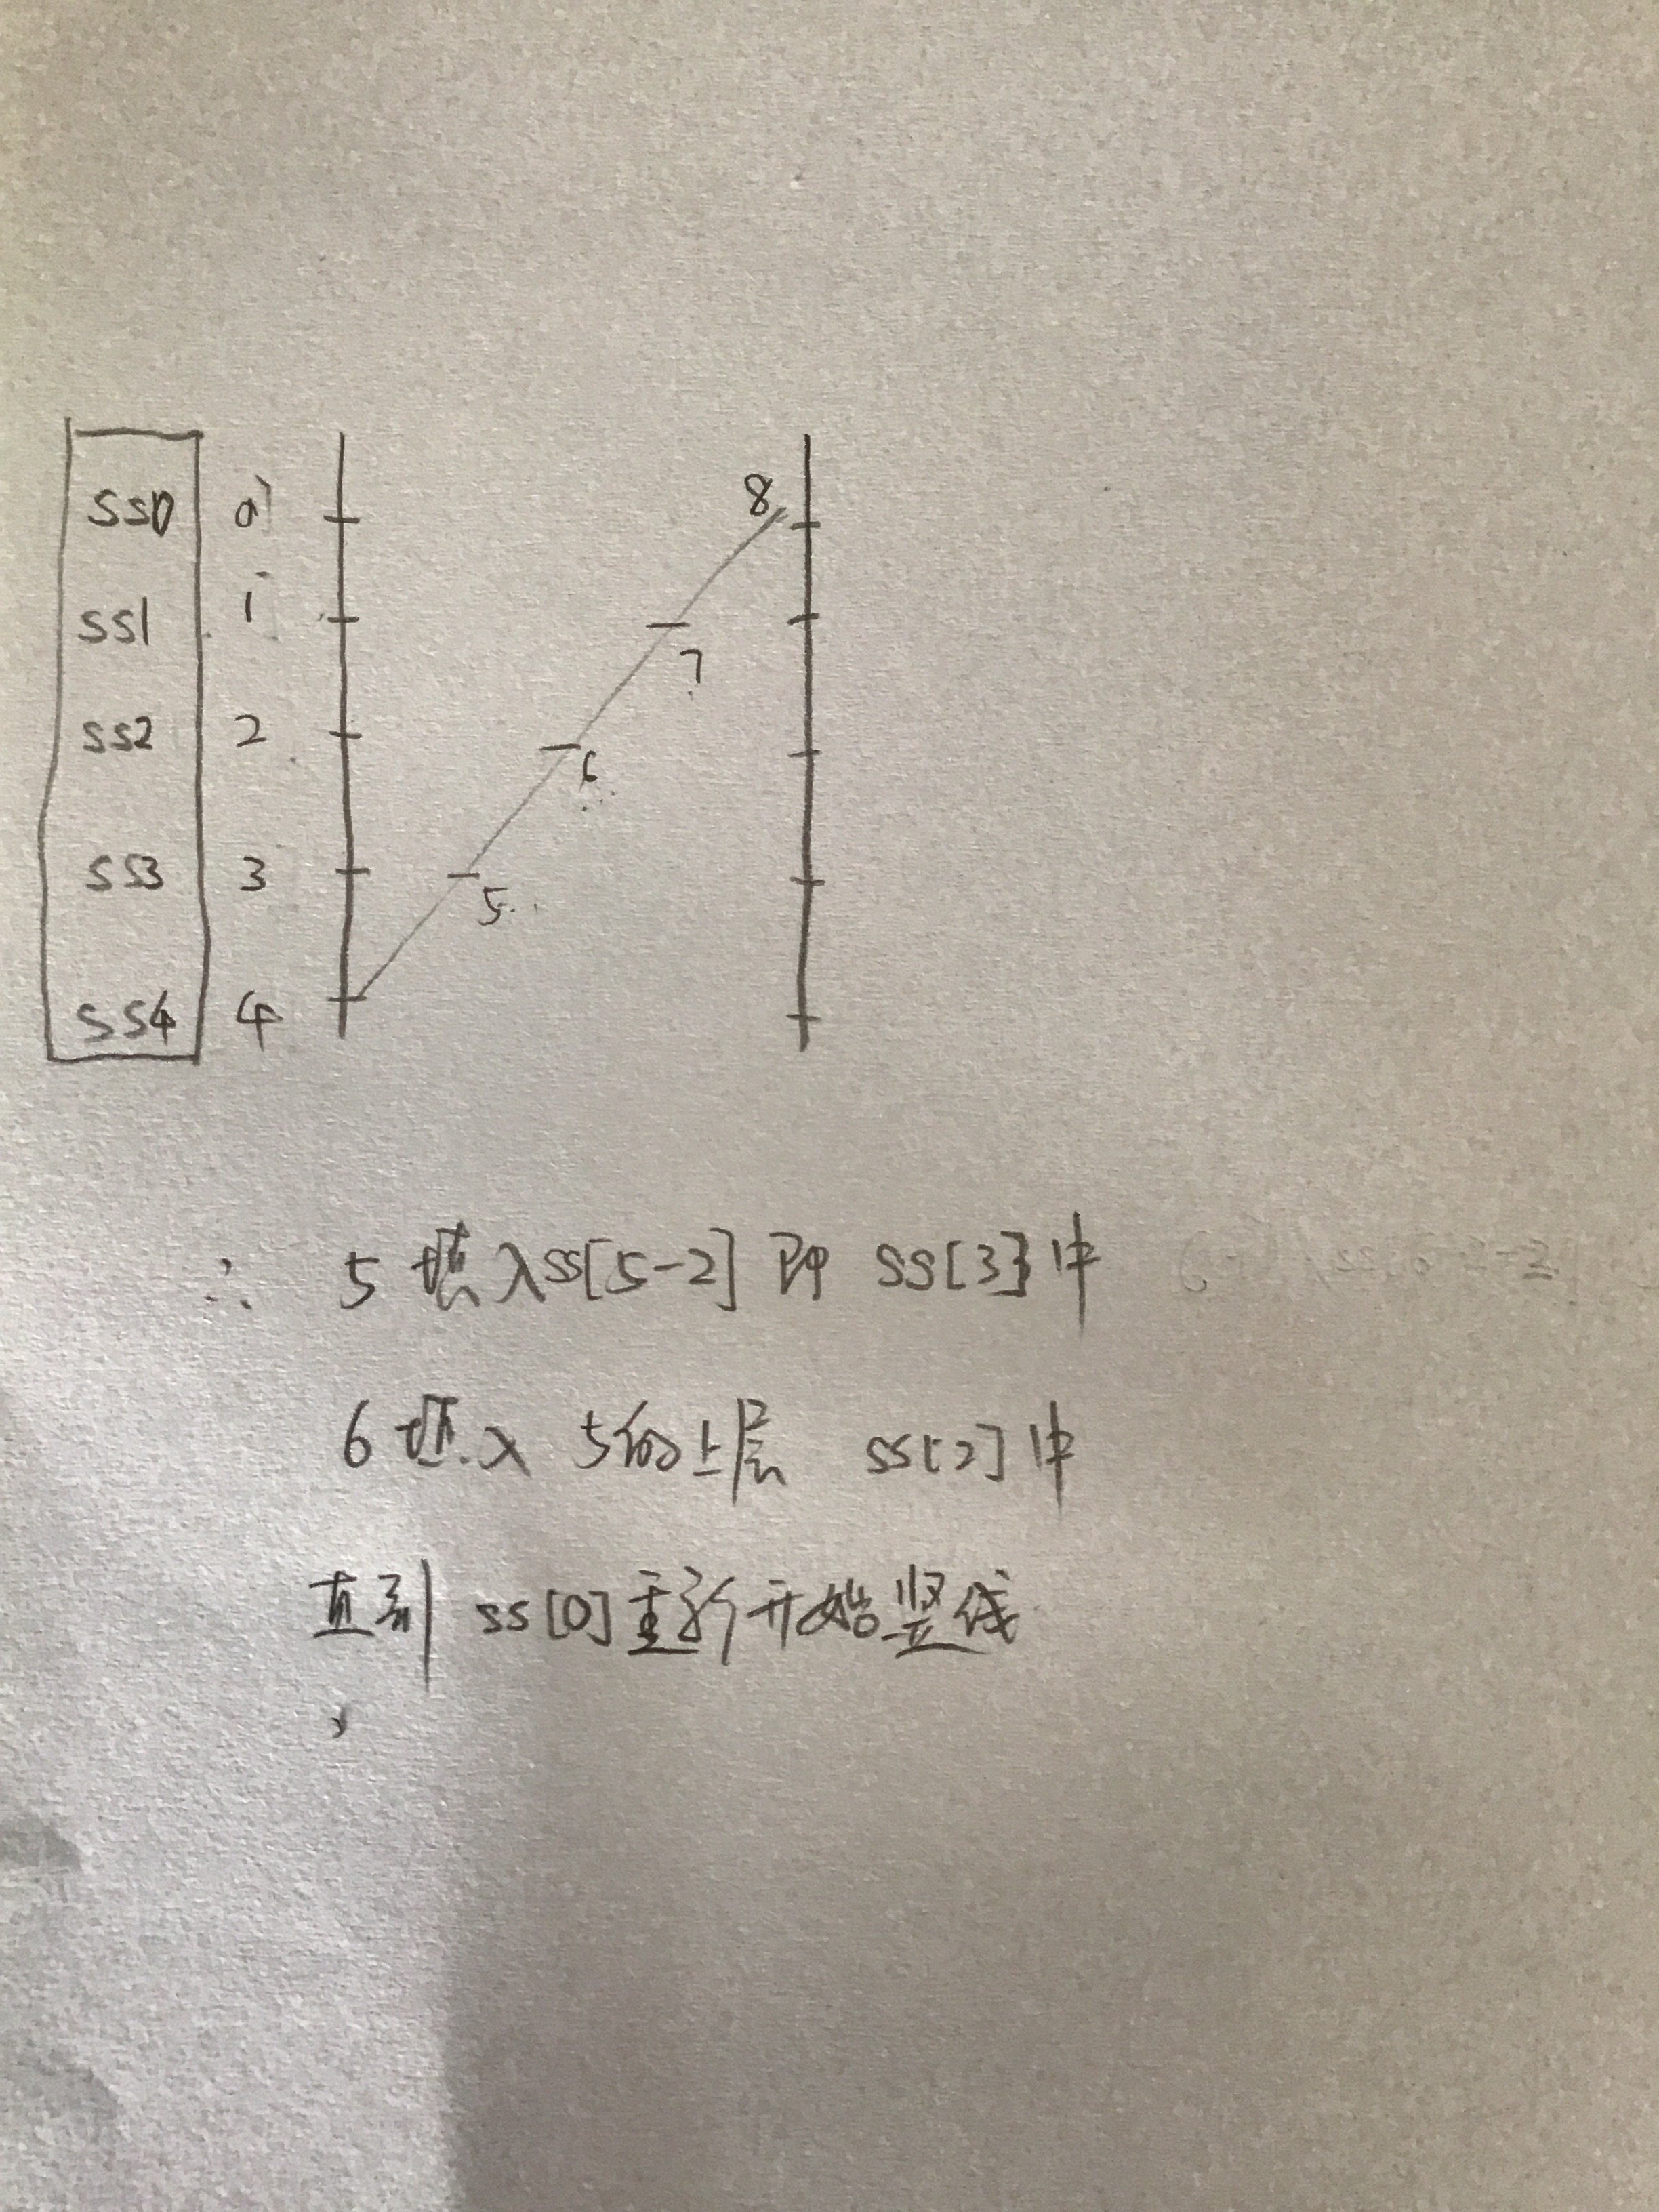 SS0 0 8
SS1 1
7
SS2 2
6
SS3 3
5
SS4 4
∴ 5 填入SS[5-2] 即 SS[3]中
6 填入 5的上层 SS[2]中
直到 SS[0]重新开始竖线